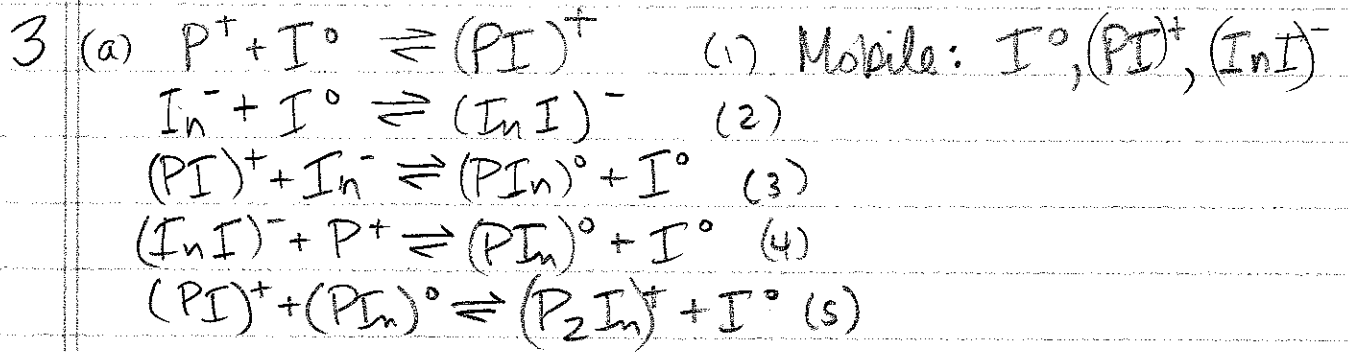 3 (a) P⁺ + I⁰ ⇌ (PI)⁺ (1) Mobile: I⁰, (PI)⁺, (InI)⁻
In⁻ + I⁰ ⇌ (InI)⁻ (2)
(PI)⁺ + In⁻ ⇌ (PIn)⁰ + I⁰ (3)
(InI)⁻ + P⁺ ⇌ (PIn)⁰ + I⁰ (4)
(PI)⁺ + (PIn)⁰ ⇌ (P₂In)⁺ + I⁰ (5)